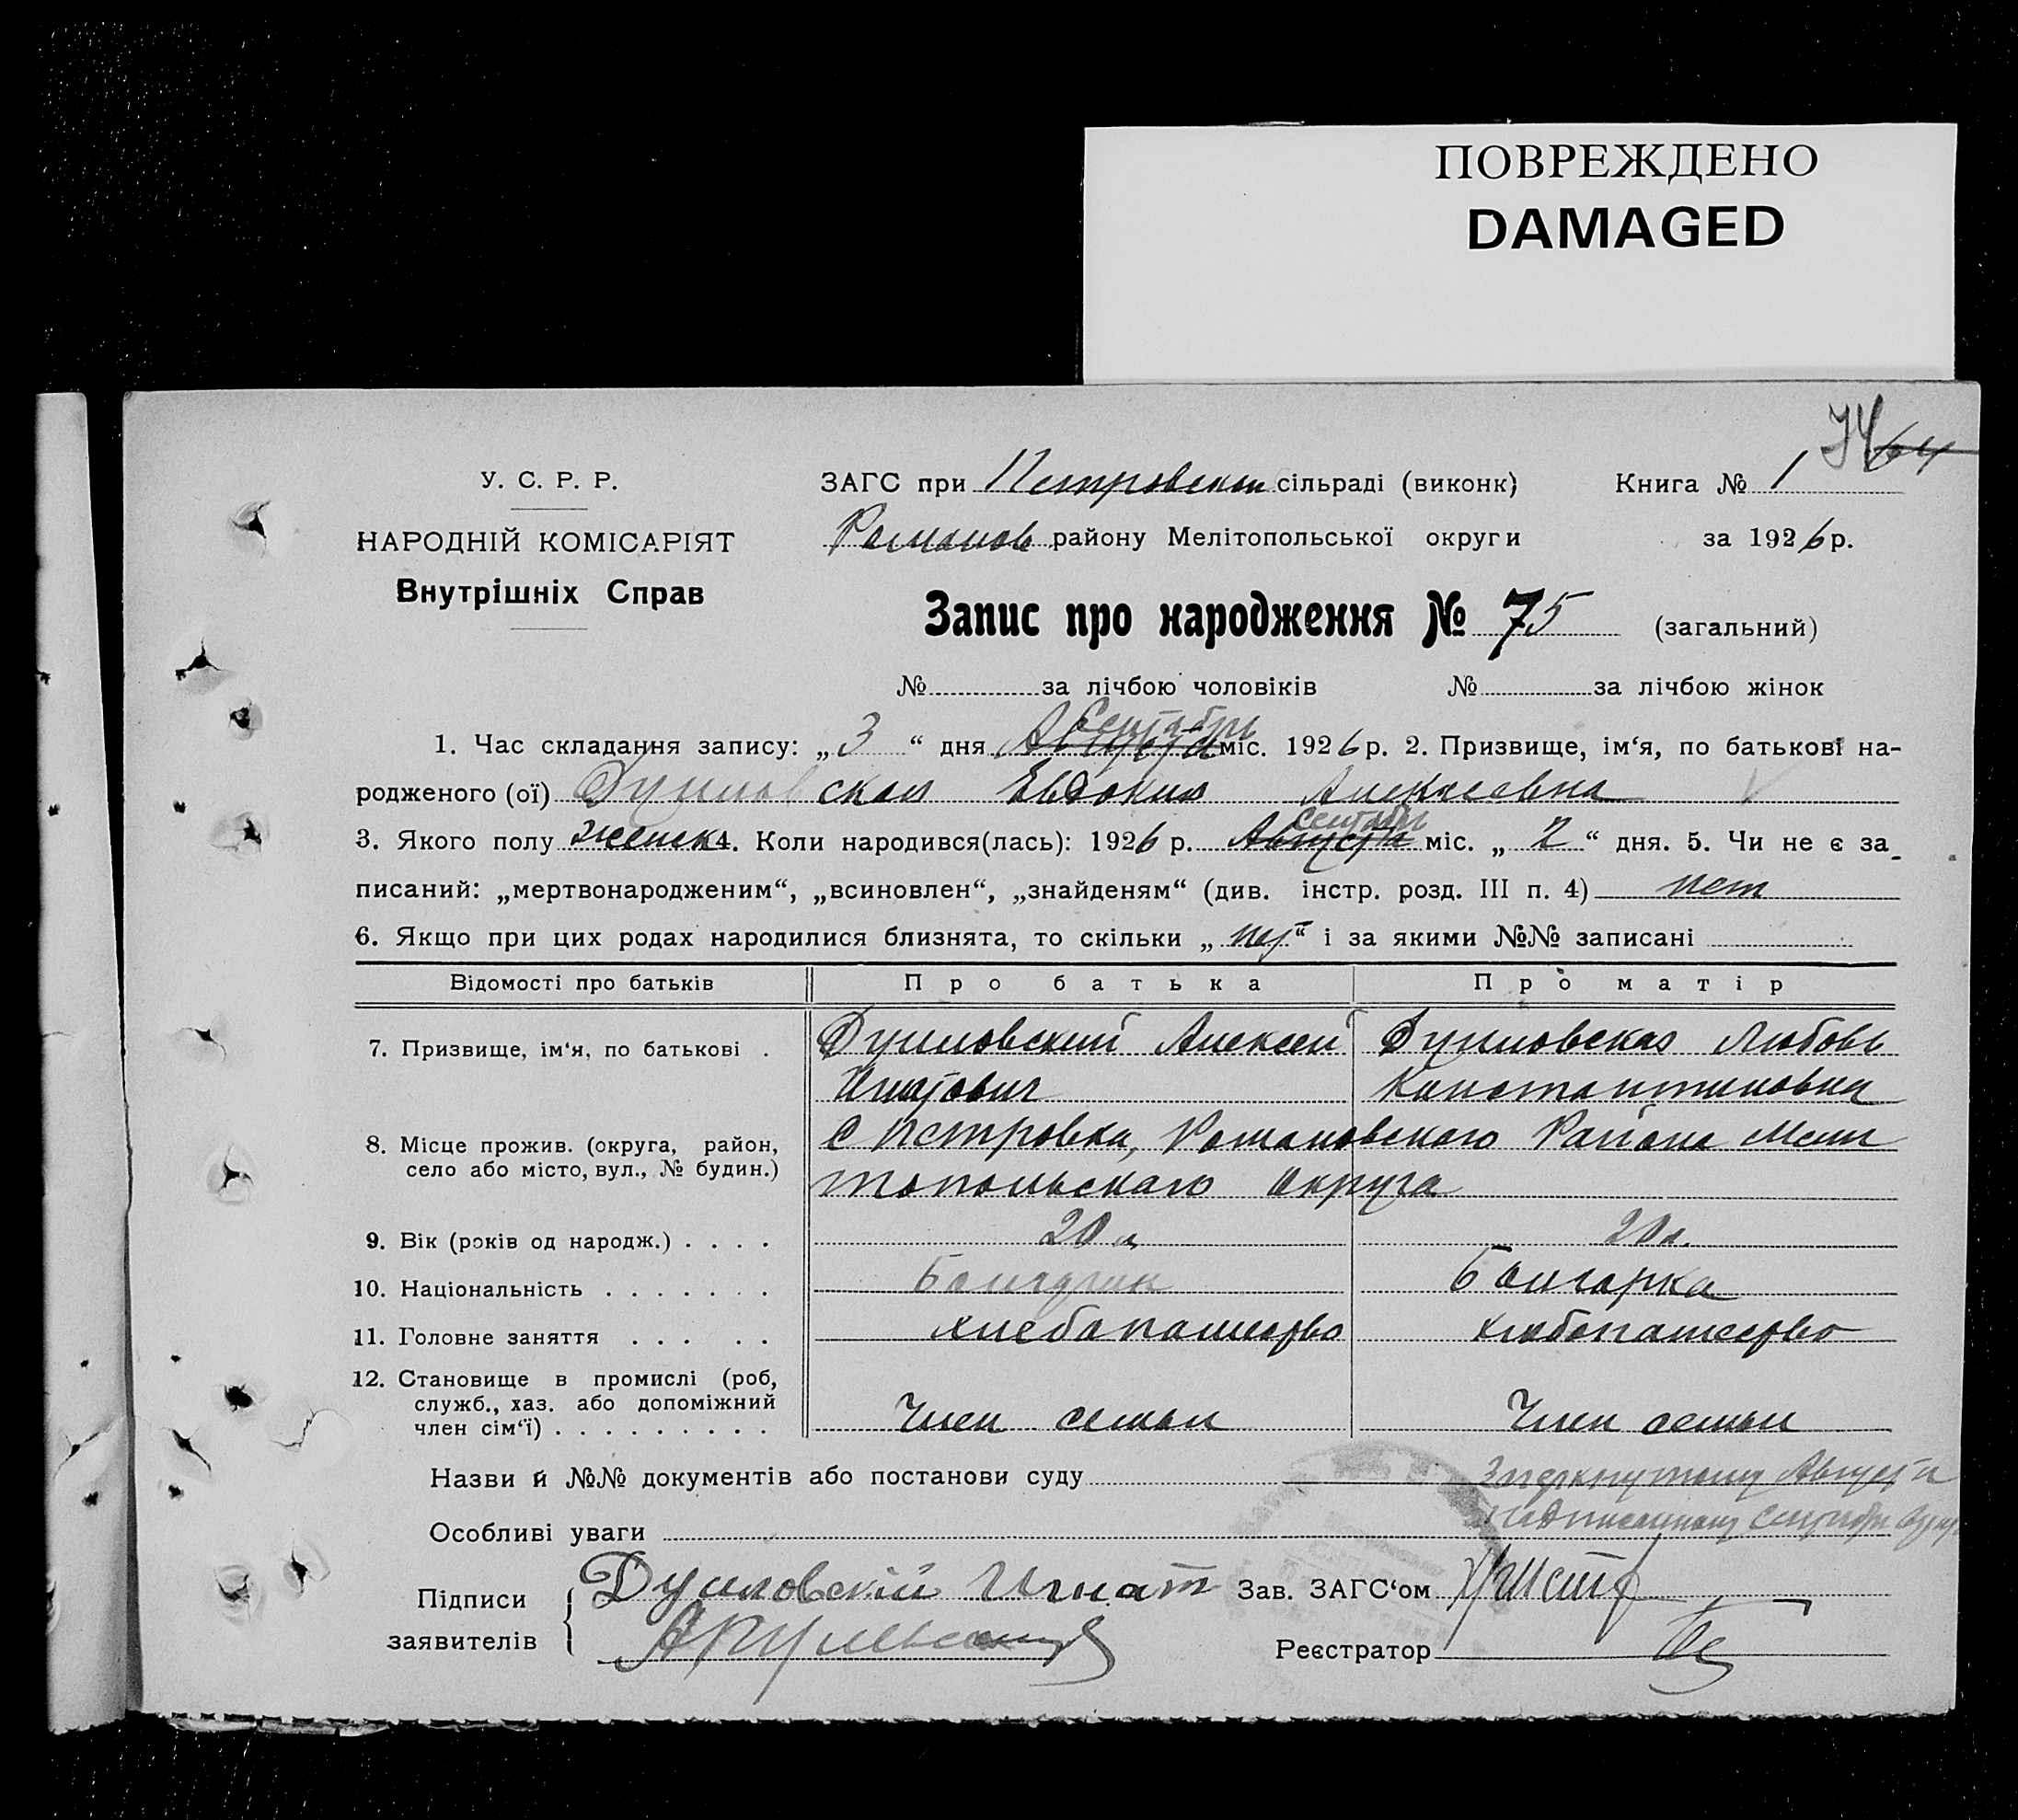 ПОВРЕЖДЕНО
DAMAGED
74 64
У. С. Р. Р.
ЗАГС при Петровском сільраді (виконк) Книга № 1
НАРОДНІЙ КОМІСАРІЯТ
Романов району Мелітопольської округи за 1926 р.
Внутрішніх Справ
Запис про народження № 75 (загальний)
№ за лічбою чоловіків № за лічбою жінок
Сентябрь
1. Час складання запису: „3“ дня Августа міс. 1926 р. 2. Призвище, ім‘я, по батькові на-
родженого (ої) Душловская Евдокия Алексеевна
Сентябрь
3. Якого полу женск 4. Коли народився(лась): 1926 р. Августа міс. „2“ дня. 5. Чи не є за-
писаний: „мертвонародженим“, „всиновлен“, „знайденям“ (див. інстр. розд. III п. 4) нет
6. Якщо при цих родах народилися близнята, то скільки „нет“ і за якими №№ записані
Відомості про батьків Про батька Про матір
7. Призвище, ім‘я, по батькові . Душловский Алексей Душловская Любовь
Игнатович Константиновна
8. Місце прожив. (округа, район, село або місто, вул., № будин.) с Петровка, Романовского Района Мели
топольскаго Округа
9. Вік (років од народж.) . . . . 20 л 20 л.
10. Національність . . . . . . . Болгарин Болгарка
11. Головне заняття . . . . . хлебопашество хлебопашество
12. Становище в промислі (роб,
служб., хаз. або допоміжний
член сім‘ї) . . . . . . . . . Член семьи Член семьи
Назви й №№ документів або постанови суду Зачеркнутому Августа
Особливі уваги надписанному Сентябрь
Підписи Душловскій Игнат Зав. ЗАГС‘ом
заявителів Реєстратор